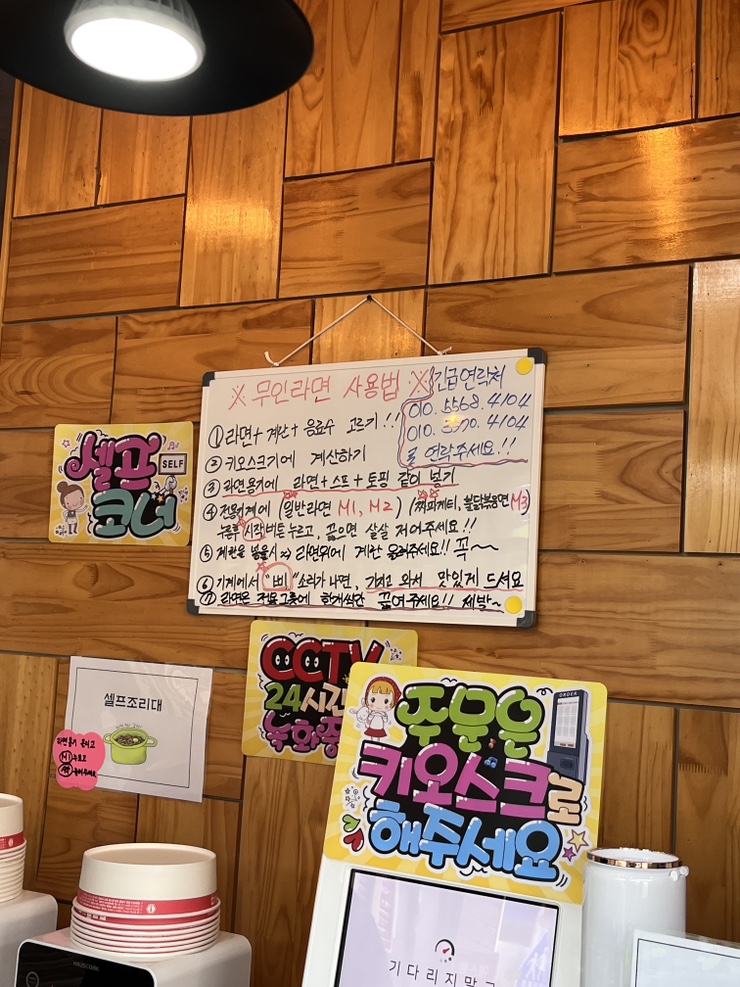 ※ 무인라면 사용법 ※
긴급연락처
010. 5568. 4104
4104
로 연락주세요!!
① 라면+ 계산+ 음료수 고르기!!
② 키오스크기에 계산하기
③ 라면용기에 라면+스프+토핑 같이 넣기
④ 전용기계에 (일반라면 M1, M2) (짜파게티, 불닭볶음면 M3)
누른후 시작버튼 누르고, 끓으면 살살 저어주세요!!
⑤ 계란을 넣을시 => 라면위에 계란 올려주세요!! 꼭~
⑥ 기계에서 "삐" 소리가 나면, 가지고 와서 맛있게 드셔요
⑦ 라면은 전용그릇에 한개씩만 끓여주세요!! 제발~
셀프
SELF
코너
CCTV
24시간
녹화중
셀프조리대
라면용기 올리고
M1 누르고
눌러주세요
ORDER
주문은
키오스크로
해주세요
기다리지말고